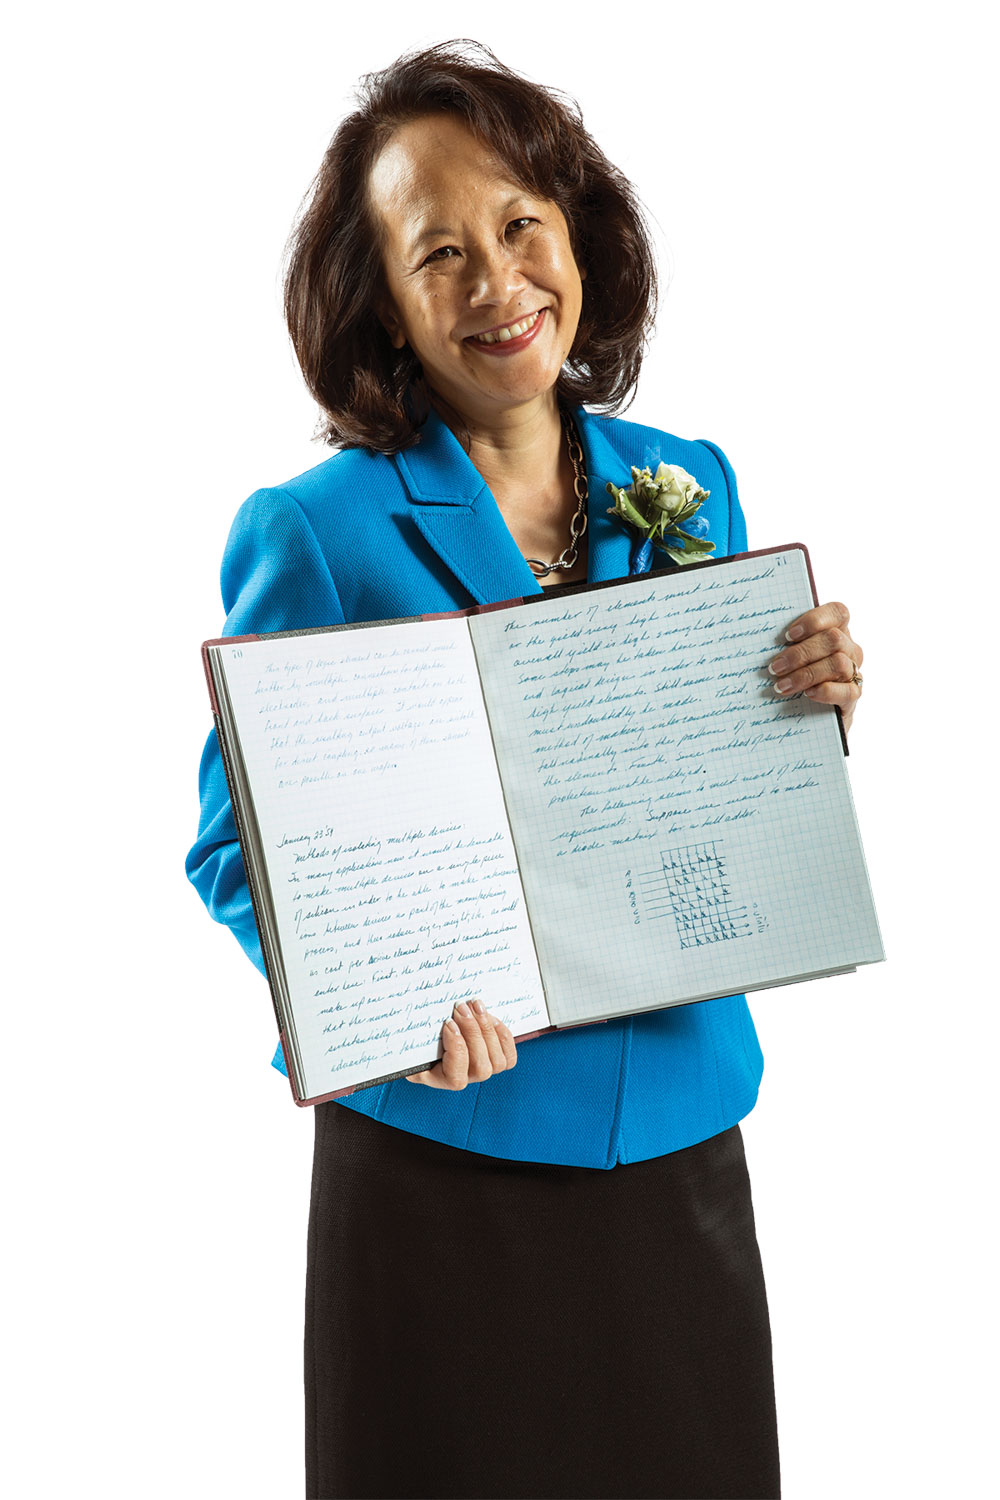 70
This type of logic element can be carried much
further by multiple connections to dispersion
electrodes, and multiple contacts on both
front and back surfaces. It would appear
that the resulting output voltages are suitable
for direct coupling, so many of these element
are possible on one wafer.
January 23 '59
Methods of isolating multiple devices:
In many applications now it would be desirable
to make multiple devices on a single piece
of silicon in order to be able to make interconnect
ions between devices as part of the manufacturing
process, and thus reduce size, weight, etc. as well
as cost per active element. Several considerations
enter here: First, the blocks of devices which
make up one unit should be large enough
that the number of external leads is
substantially reduced, economic
advantages in either
71
the number of elements must be small,
or the yield very high in order that
overall yield is high enough to be economic.
Some steps may be taken here in transistor
and logical design in order to make
high yield elements. Still some compromise
must undoubtedly be made. Third, the
method of making interconnections, should
fall naturally into the pattern of making
the elements. Fourth, some method of surface
protection must be utilized.
The following seems to meet most of these
requirements: Suppose we want to make
a diode matrix for a full adder.